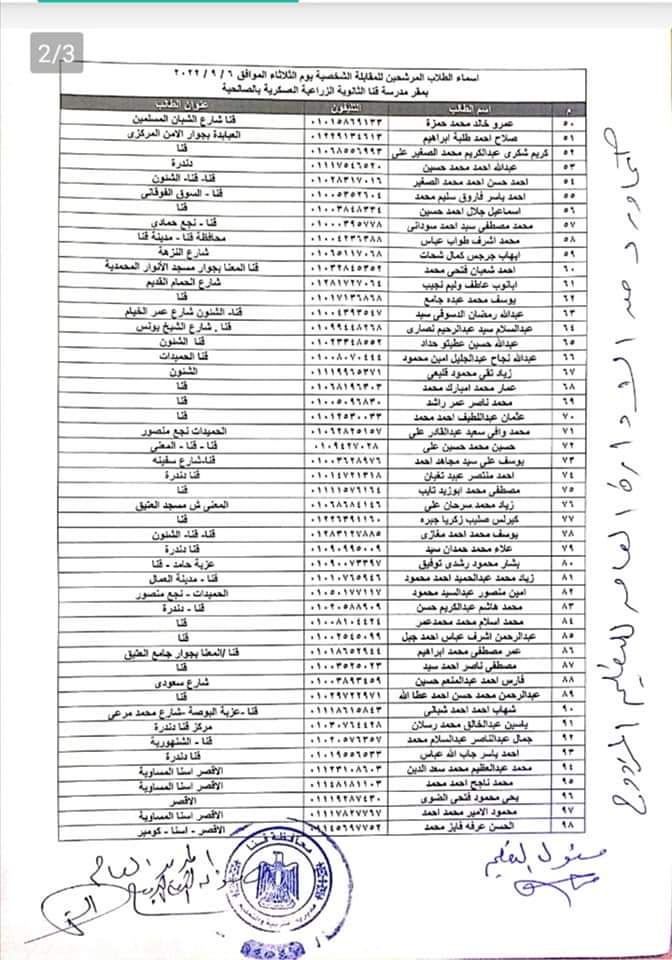 2/3
اسماء الطلاب المرشحين للمقابلة الشخصية يوم الثلاثاء الموافق ٦ / ٩ / ٢٠٢٢
بمقر مدرسة قنا الثانوية الزراعية العسكرية بالصالحية
م اسم الطالب التليفون عنوان الطالب
٥٠ عمرو خالد محمد حمزة ٠١٠١٥٨٦٩١٣٣ قنا شارع الشبان المسلمين
٥١ صلاح احمد طلبة ابراهيم ٠١٢٢٩١٣٤٦١٣ العبابدة بجوار الامن المركزى
٥٢ كريم شكرى عبدالكريم محمد الصغير على ٠١٠٦٨٥٥٦٩٩٣ قنا
٥٣ عبدالله احمد محمد حسين ٠١١١٧٥٤٦٥٢٠ دندرة
٥٤ احمد حسن احمد محمد الصغير ٠١٠٢٨٣١٧٠١٦ قنا- قنا- الشئون
٥٥ احمد ياسر فاروق سليم محمد ٠١٠٠٥٣٥٢٦٠٤ قنا - السوق الفوقانى
٥٦ اسماعيل جلال احمد حسين ٠١٠٠٣٨٤٨٣٣٤ قنا
٥٧ محمد مصطفي سيد احمد سودانى ٠١٠٠٠٣٩٥٧٧٨ قنا - نجع حمادى
٥٨ محمد اشرف طواب عباس ٠١٠٠٤٢٣٦٣٨٨ محافظة قنا - مدينة قنا
٥٩ ايهاب جرجس كمال شحات ٠١٠٦٥١١٧٠٦٨ شارع النزهة
٦٠ احمد شعبان فتحى محمد ٠١٠٣٢٨٤٥٣٥٢ قنا المعنا بجوار مسجد الأنوار المحمدية
٦١ ابانوب عاطف وليم نجيب ٠١٢٨١٧٢٧٠٦٤ شارع الحمام القديم
٦٢ يوسف محمد عبده جامع ٠١٠١٧١٣٦٨٦٨ قنا
٦٣ عبدالله رمضان الدسوقي سيد ٠١٠٠٤٣٩٣٥٤٧ قنا- الشئون شارع عمر الخيام
٦٤ عبدالسلام سيد عبدالرحيم نصارى ٠١٠٩٩٤٤٨٢٦٨ قنا . شارع الشيخ يونس
٦٥ عبدالله حسين عطيتو حداد ٠١٠٢٣٣٤٨٥٥٢ قنا الشئون
٦٦ عبدالله نجاح عبدالجليل امين محمود ٠١٠٠٨٠٧٠٤٤٤ قنا الحميدات
٦٧ زياد تقي محمود قليعى ٠١١١٩٩٦٥٣٧١ الشئون
٦٨ عمار محمد امبارك محمد ٠١٠٦٨١٩٦٣٠٣ قنا
٦٩ محمد ناصر عمر راشد ٠١٠٠٥٠٩٦٨٣٠ قنا
٧٠ عثمان عبداللطيف احمد محمد ٠١٠١٢٥٣٠٠٣٣ قنا
٧١ محمد وافي سعيد عبدالقادر على ٠١٠٦٢٨٢٥١٥٧ الحميدات نجع منصور
٧٢ حسين محمد حسين على ٠١٠٩٤٢٧٠٢٨ قنا - قنا - المعنى
٧٣ يوسف على سيد مجاهد احمد ٠١٠٠٣٦٢٨٩٧٦ قنا-شارع سفينه
٧٤ احمد منتصر عبيد تغيان ٠١٠١٤٧٢١٣١٨ قنا دندرة
٧٥ مصطفى محمد ابوزيد تايب ٠١١١١٥٧٦١٦٤ قنا
٧٦ زياد محمد سرحان على ٠١٠٦٨٦٨٤١٤٦ المعنى ش مسجد العتيق
٧٧ كيرلس صليب زكريا جبره ٠١٢٢٦٣٩١١٦٠ قنا
٧٨ يوسف محمد احمد مغازى ٠١٢٨٣١٢٧٨٨٥ قنا- قنا- الشئون
٧٩ علاء محمد حمدان سيد ٠١٠٩٠٩٩٥٠٠٩ قنا دندرة
٨٠ بشار محمود رشدى توفيق ٠١٠٩٠٠٧٣٣٩٧ عزبة حامد - قنا
٨١ زياد محمد عبدالحميد احمد محمود ٠١٠١٠٧٦٥٩٤٦ قنا - مدينة العمال
٨٢ امين منصور عبدالسيد محمود ٠١٠٥٠١٧٧١١٧ الحميدات - نجع منصور
٨٣ محمد هاشم عبدالكريم حسن ٠١٠٢٠٥٨٨٩٠٩ قنا - دندرة
٨٤ محمد اسلام محمد محمدعمر ٠١٠٠٨١٠٤٢٢٤ قنا
٨٥ عبدالرحمن اشرف عباس احمد جبل ٠١٠٠٢٥٤٥٠٩٩ قنا
٨٦ عمر مصطفى محمد ابراهيم ٠١٠١٨٦٥٢٩٤٤ قنا /المعنا بجوار جامع العتيق
٨٧ مصطفى ناصر احمد سيد ٠١٠٠٣٥٢٥٠٢٣ قنا
٨٨ فارس احمد عبدالمنعم حسين ٠١٠٠٣٨٩٣٤٥٩ شارع سعودى
٨٩ عبدالرحمن محمد حسن احمد عطا الله ٠١٠٢٩٧٢٢٩٧١ قنا
٩٠ شهاب احمد احمد شبانى ٠١١١٨٦١٥٨٤٣ قنا -عزبة البوصة -شارع محمد مرعى
٩١ ياسين عبدالخالق محمد رسلان ٠١٠٣٠٧٦٤٤٢٨ مركز قنا دندرة
٩٢ جمال عبدالناصر عبدالسلام محمد ٠١٠٢٠٥٧٦٣٥٧ قنا - الشنهورية
٩٣ احمد ياسر جاب الله عباس ٠١٠١٩٥٥٦٥٣٣ قنا دندرة
٩٤ محمد عبدالعظيم محمد سعد الدين ٠١١٢٣١٠٨٦٠٣ الأقصر اسنا المساوية
٩٥ محمد ناجح احمد محمد ٠١١٤٨١٨١١٠٣ الأقصر اسنا المساوية
٩٦ يحى محمود فتحى الضوى ٠١١١٩٢٨٧٤٣٠ الأقصر
٩٧ محمود الامير محمد احمد ٠١١١٧٨٢٧٧٦٧ الأقصر اسنا المساوية
٩٨ الحسن عرفه فايز محمد ٠١١٤٥٦٩٧٧٥٢ الأقصر - اسنا - كومير
الإدارة العامه للتعليم المزدوج
مسئول التعليم
المدير العام
محافظة قنا